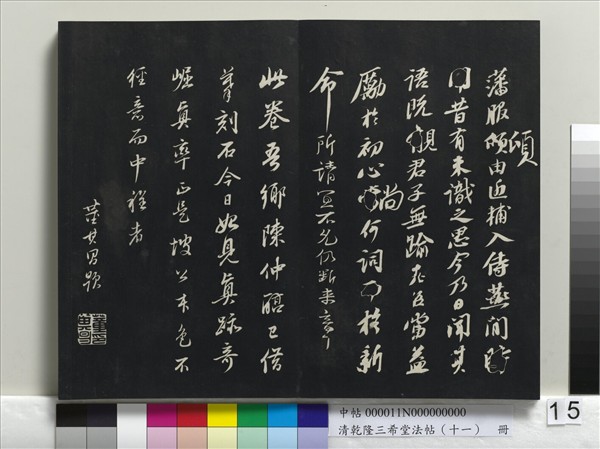 藩服頃由近輔入侍燕閒
昔有未識之思今乃日聞其
語既覩君子無踰老臣當益
勵於初心尚何詞於新
命所請宜不允仍斷來章
此卷吾鄉陳仲醇已借
刻石今日始見真跡奇
崛真率正是坡公本色不
經意而中程者
董其昌題
中帖 000011N000000000
清乾隆三希堂法帖(十一) 冊
15